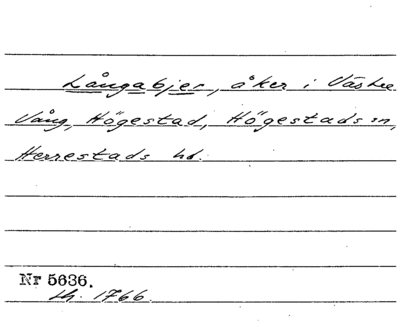 Långabjer, åker i Västre
Vång, Högestad, Högestads sn,
Herrestads hd.
Nr 5636.
1766.